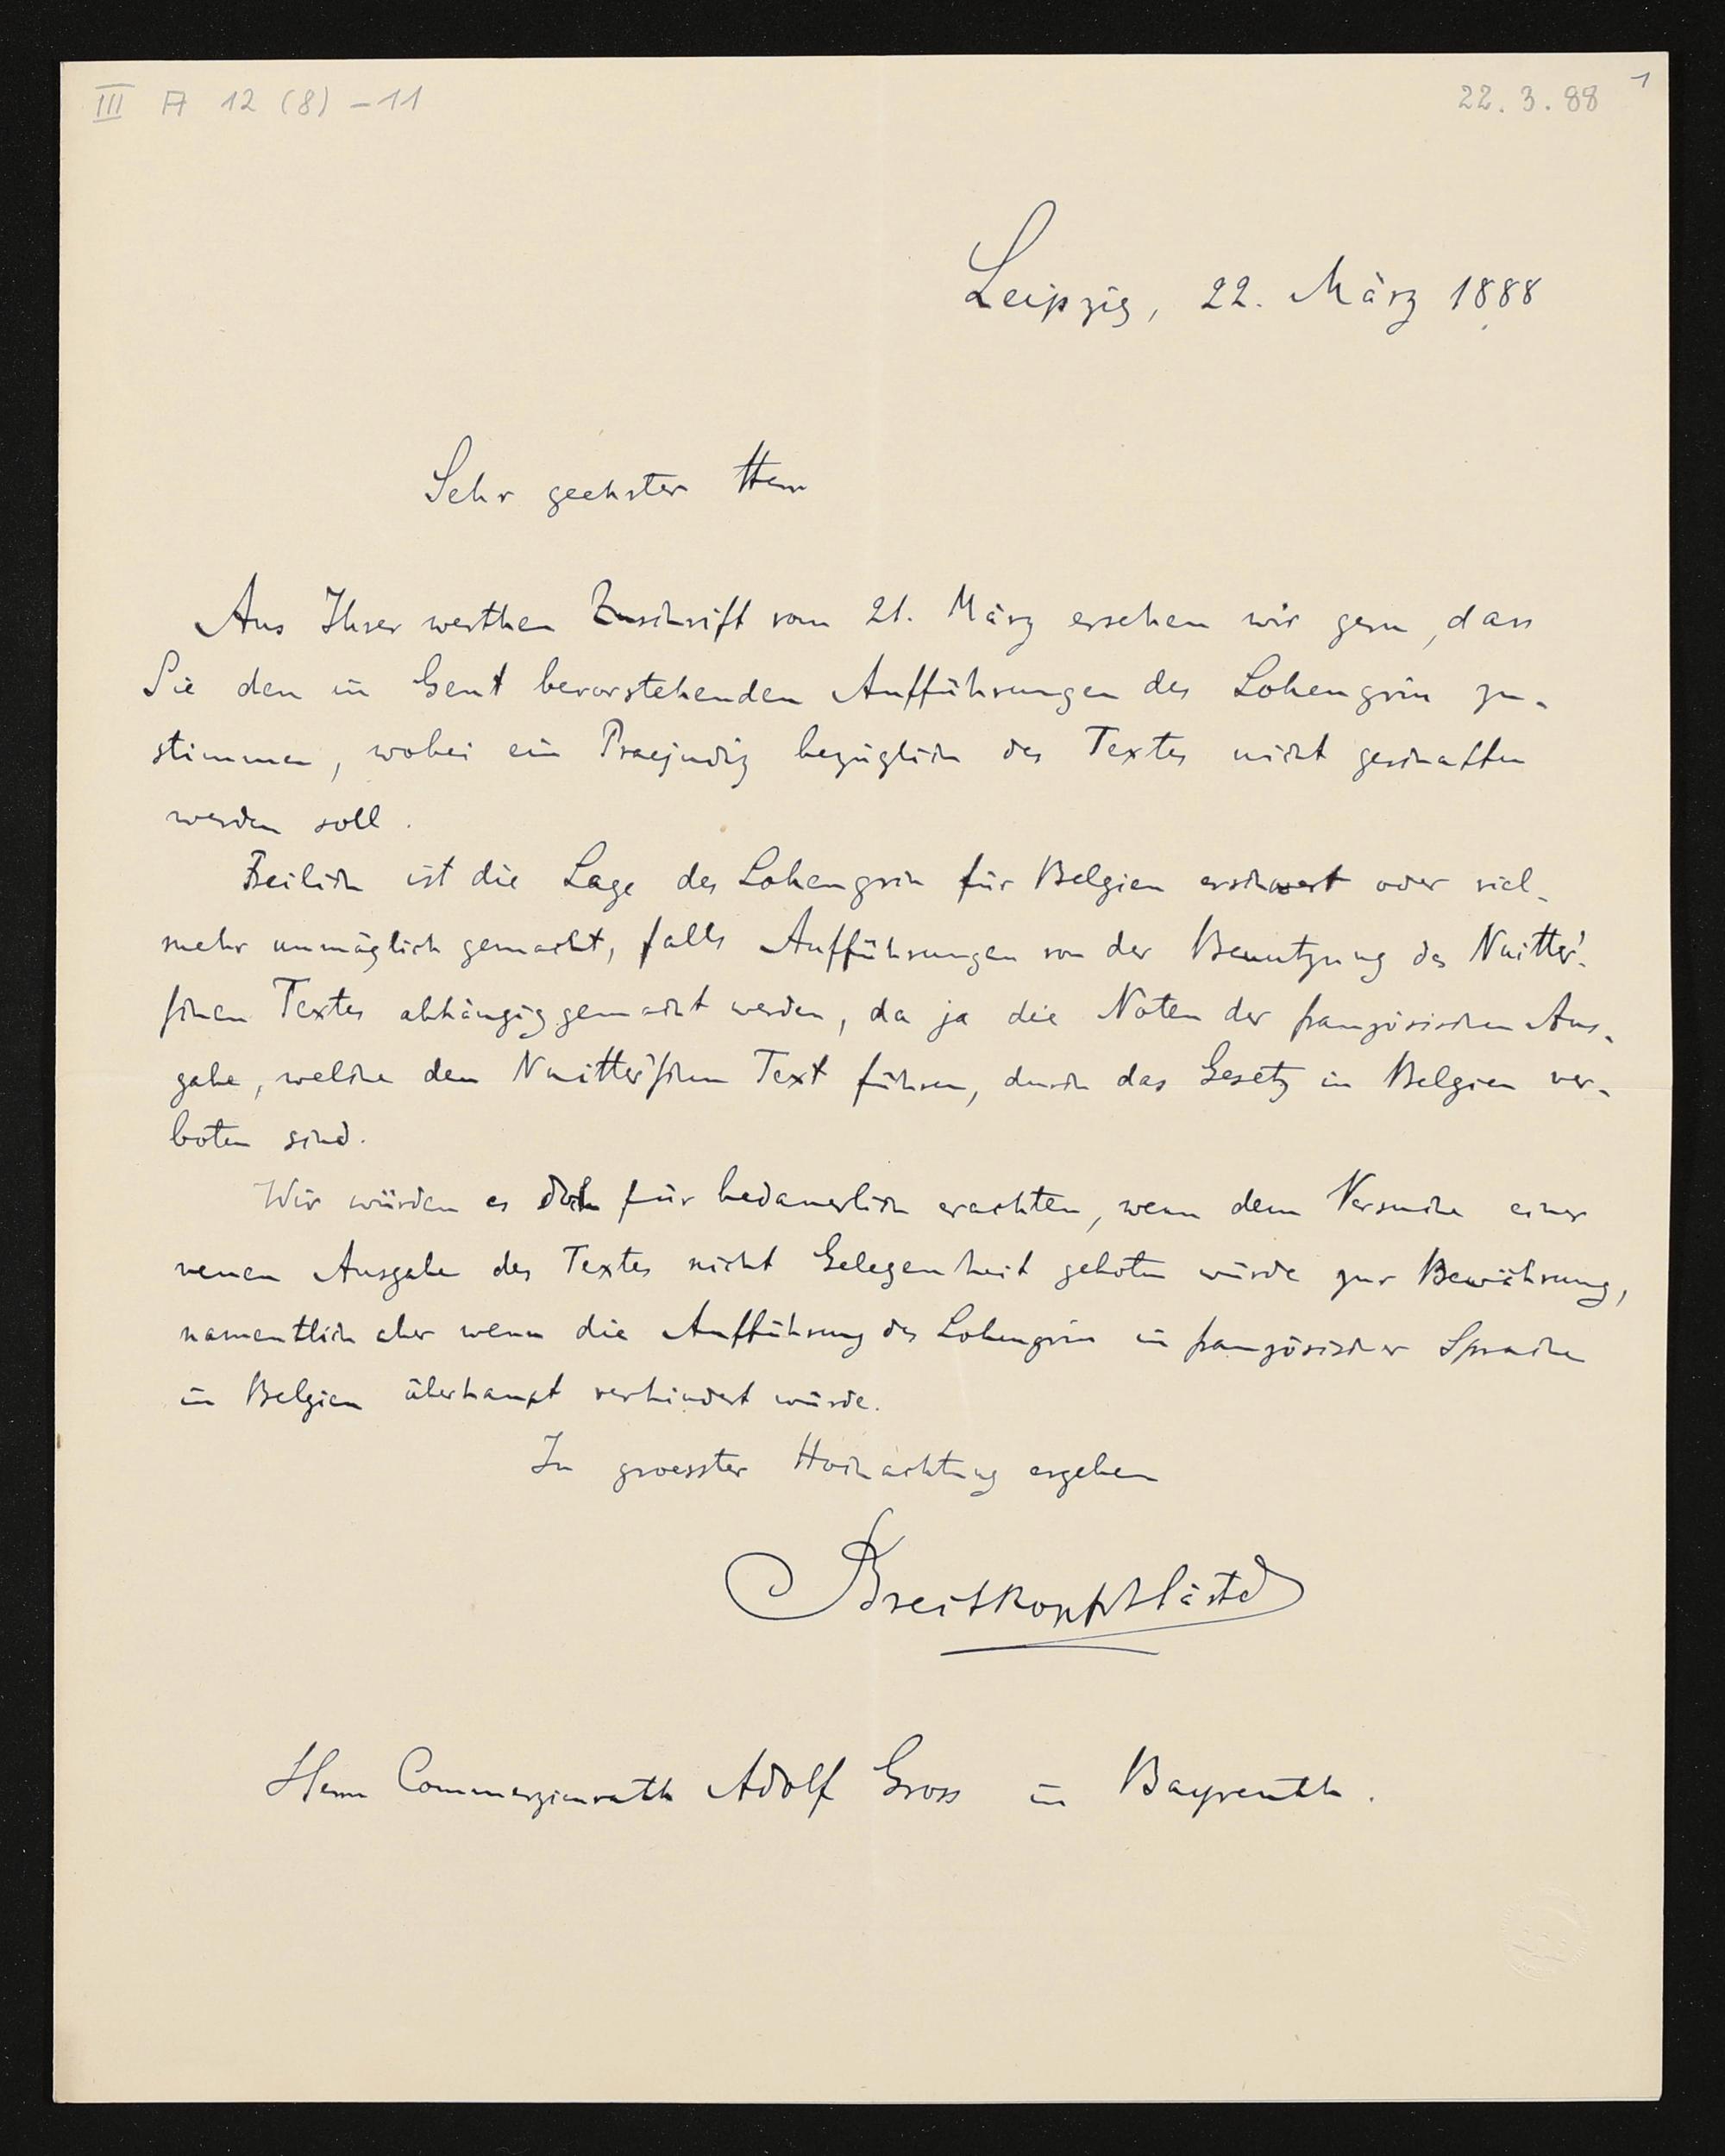 III A 12 (8) - 11
22. 3. 88
1
Leipzig, 22. März 1888
Sehr geehrter Herr
Aus Ihrer werthen Zuschrift vom 21. März ersehen wir gern, dass
Sie den in Gent bevorstehenden Aufführungen des Lohengrin zu-
stimmen, wobei ein Praejudiz bezüglich des Textes nicht geschaffen
werden soll.
Freilich ist die Lage des Lohengrin für Belgien erschwert oder viel-
mehr unmöglich gemacht, falls Aufführungen von der Benutzung des Nuitter'-
schen Textes abhängig gemacht werden, da ja die Noten der französischen Aus-
gabe, welche den Nuitter'schen Text führen, durch das Gesetz in Belgien ver-
boten sind.
Wir würden es doch für bedauerlich erachten, wenn dem Versuche einer
neuen Ausgabe des Textes nicht Gelegenheit geboten würde zur Bewährung,
namentlich aber wenn die Aufführung des Lohengrin in französischer Sprache
in Belgien überhaupt verhindert würde.
In groesster Hochachtung ergeben
Breitkopf & Härtel
Herrn Commerzienrath Adolf Gross in Bayreuth.